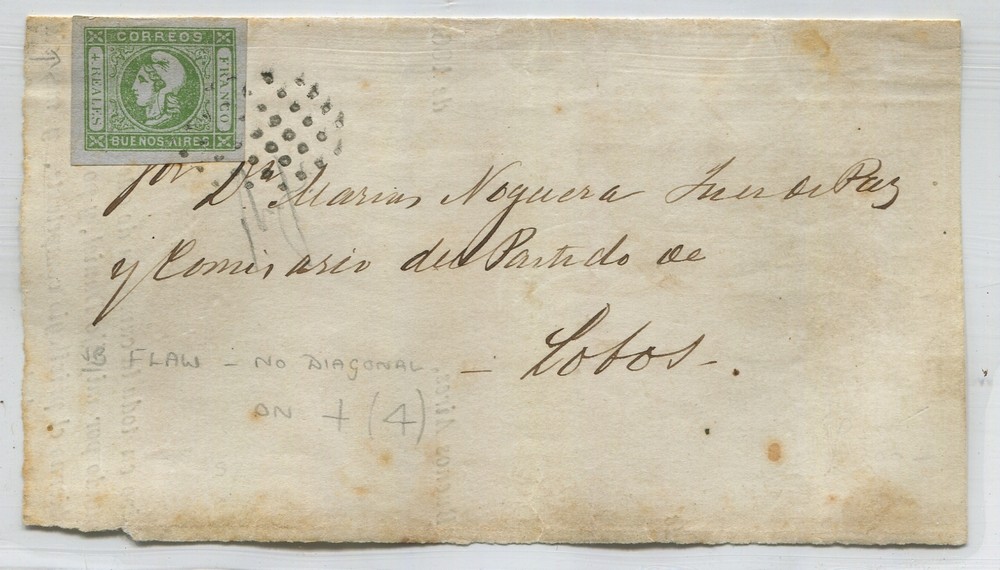 CORREOS
4 REALES
FRANCO
BUENOS AIRES
Dn Marias Noguera Juez de Paz
y Comisario del Partido de
Lobos.
FLAW - NO DIAGONAL
ON + (4)